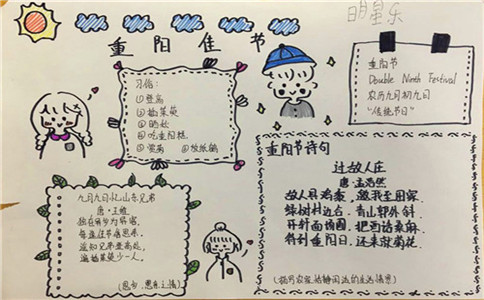 明星乐
重阳佳节
习俗:
①登高
②插茱萸
③晒秋
④吃重阳糕
⑤赏菊 ⑥放纸鸢
重阳节
Double Ninth Festival
农历九月初九日
"传统节日"
九月九日忆山东兄弟
唐·王维
独在异乡为异客,
每逢佳节倍思亲。
遥知兄弟登高处,
遍插茱萸少一人。
(思乡、思亲之情)
重阳节诗句
过故人庄
唐·孟浩然
故人具鸡黍,邀我至田家。
绿树村边合,青山郭外斜。
开轩面场圃,把酒话桑麻。
待到重阳日,还来就菊花。
(描写农家恬静闲适的生活情景)